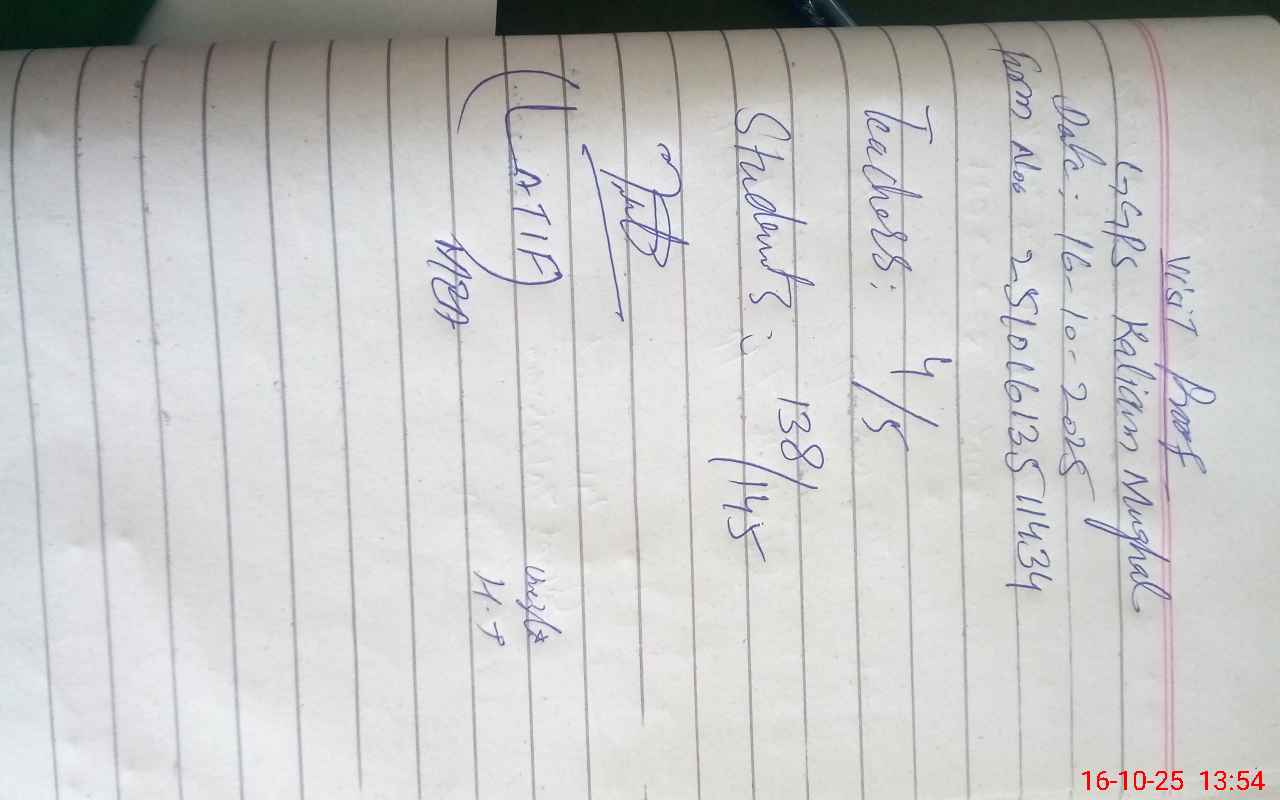 Visit Proof
GGPS Kaliam Mughal
Date: 16-10-2025
Form No 2510161351434
Teachers: 4/5
Students: 138/145
(LATIF)
MEA
H.T
16-10-25 13:54